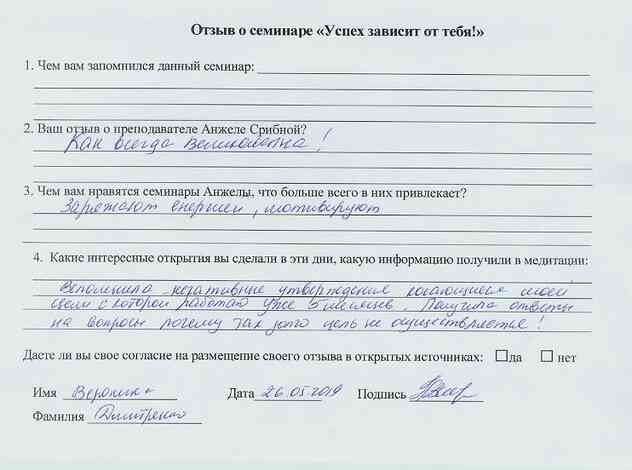 Отзыв о семинаре «Успех зависит от тебя!»
1. Чем вам запомнился данный семинар:
2. Ваш отзыв о преподавателе Анжеле Срибной?
Как всегда великолепна!
3. Чем вам нравятся семинары Анжелы, что больше всего в них привлекает?
Заряжают энергией, мотивируют
4. Какие интересные открытия вы сделали в эти дни, какую информацию получили в медитации:
Вспомнила негативные утверждения касающиеся моей
цели с которой работаю уже 5 месяцев. Получила ответы
на вопросы почему так долго цель не осуществляется!
Даете ли вы свое согласие на размещение своего отзыва в открытых источниках: да нет
Имя Вероника Дата 26.05.2019 Подпись
Фамилия Дмитренко